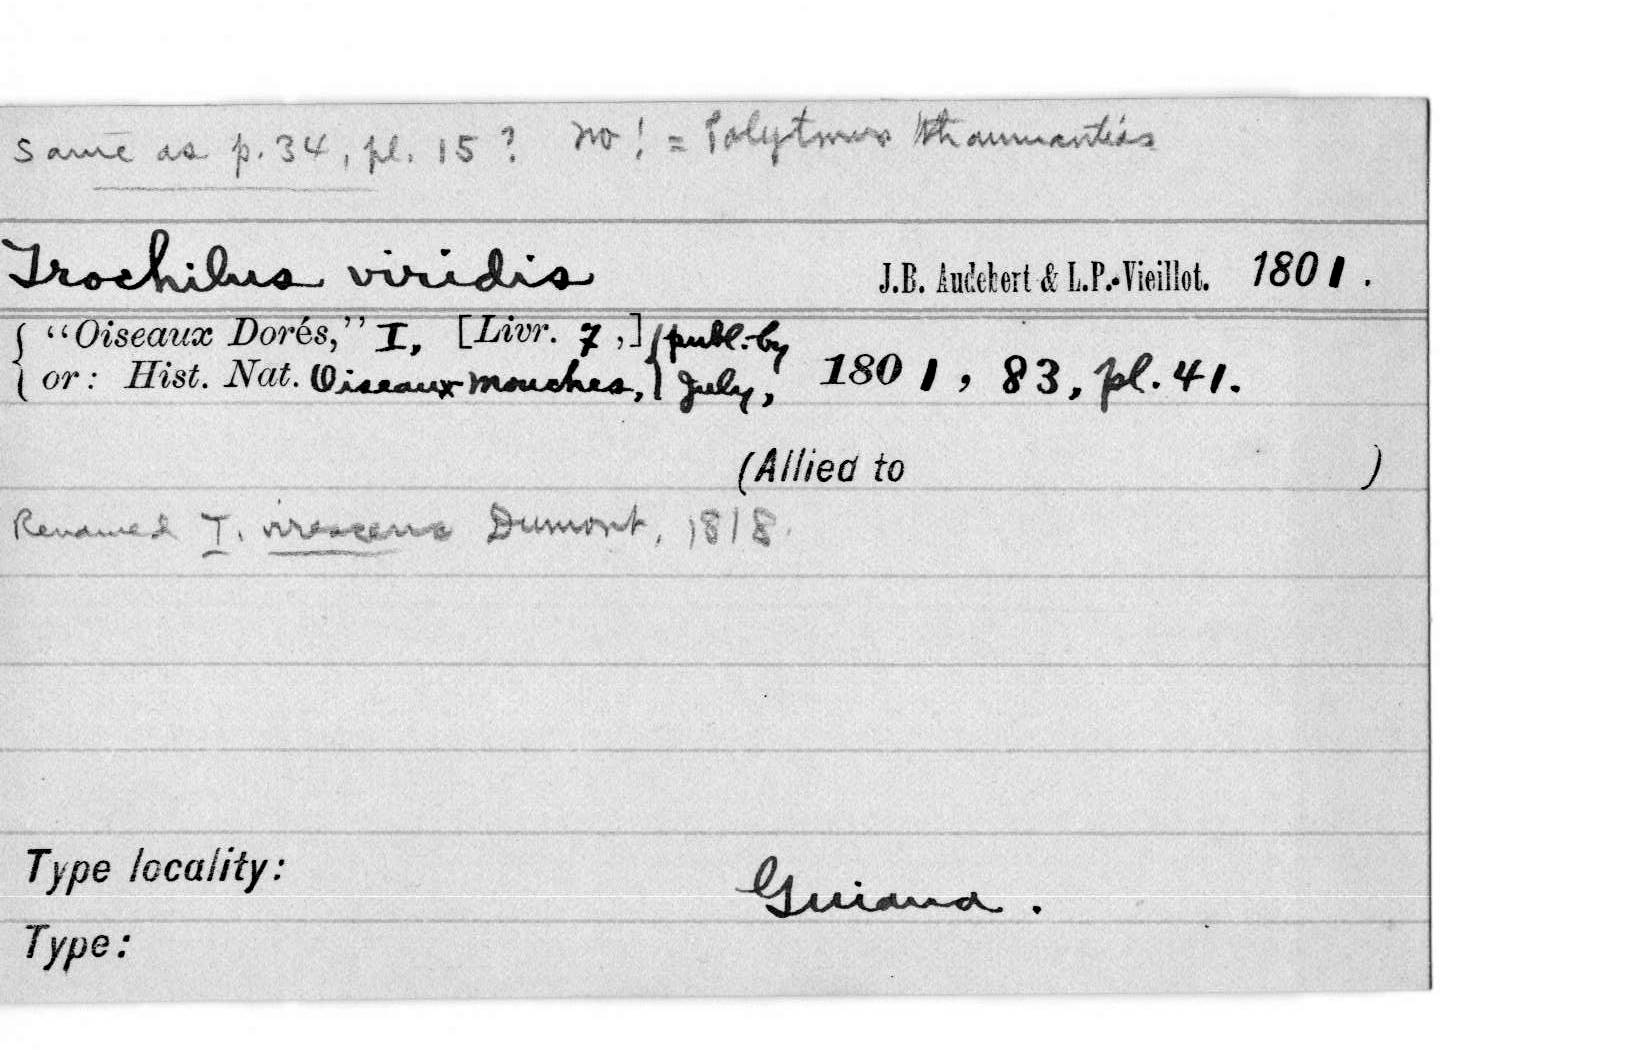 Same as p. 34, pl. 15? No! = Polytmus thaumantias
Trochilus viridis J.B. Audebert & L.P. Vieillot. 1801.
{ "Oiseaux Dorés," I, [Livr. 7,] { publ. by
{ or: Hist. Nat. Oiseaux-mouches, { July, 1801, 83, pl. 41.
(Allied to )
Renamed T. virescens Dumont, 1818.
Type locality: Guiana.
Type: